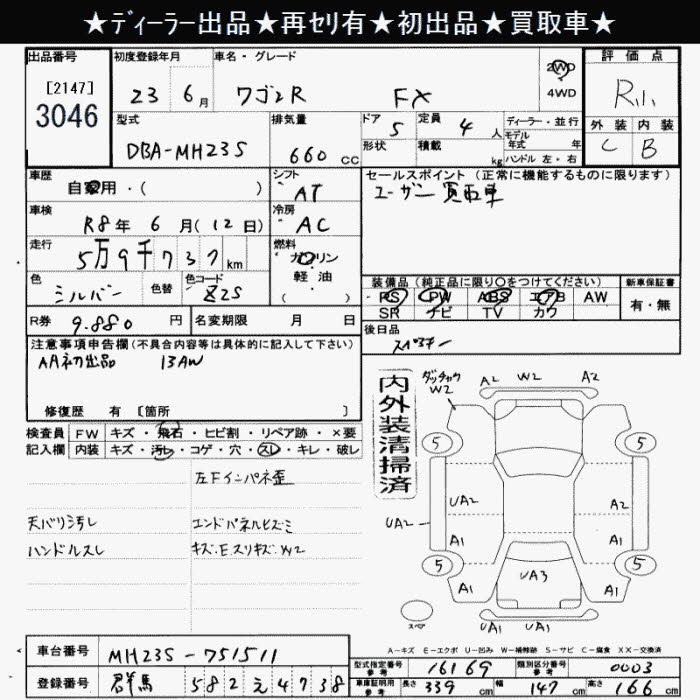 ★ディーラー出品★再セリ有★初出品★買取車★
出品番号
[2147]
3046
初度登録年月
23 6月
車名・グレード
ワゴンR FX
2WD
4WD
評価点
R小
外装 内装
C B
型式
DBA-MH23S
排気量
660 CC
ドア 5
定員 4 人
形状
積載 kg
ディーラー・並行
モデル年式 年
ハンドル 左・右
車歴
自家用・( )
シフト
AT
セールスポイント(正常に機能するものに限ります)
ユーザー買取車
車検
R8年 6月(12日)
冷房
AC
走行
5万9千737km
燃料
ガソリン
軽油
( )
色
シルバー
色替
色コード
Z2S
装備品(純正品に限り○をつけてください)
PS PW ABS エアB AW
SR ナビ TV カワ
新車保証書
有・無
R券 9.880 円
名変期限 月 日
後日品
スペアキー
注意事項申告欄(不具合内容等は具体的に記入して下さい)
AA初出品 13AW
修復歴 有 [箇所 ]
検査員
記入欄
FW キズ・飛石・ヒビ割・リペア跡・×要
内装 キズ・汚レ・コゲ・穴・スレ・キレ・破レ
左Fインパネ歪
天バリ汚レ
エンドパネルヒズミ
ハンドルスレ
キズ.E.スリキズ.W2
内外装清掃済
W2
A2 W2 A2
5 5
UA2
A2
UA2
A1 A1
5 5
UA3
A1 A1
UA1 UA1
スペア
A-キズ E-エクボ U-凹み W-補修跡 S-サビ C-腐食 XX-交換済
車台番号
MH23S-751511
登録番号
群馬 582え4738
型式指定番号
参考
16169
類別区分番号
参考
0003
車庫証明用
参考
長さ 339 cm
幅 147 cm
高さ 166 cm